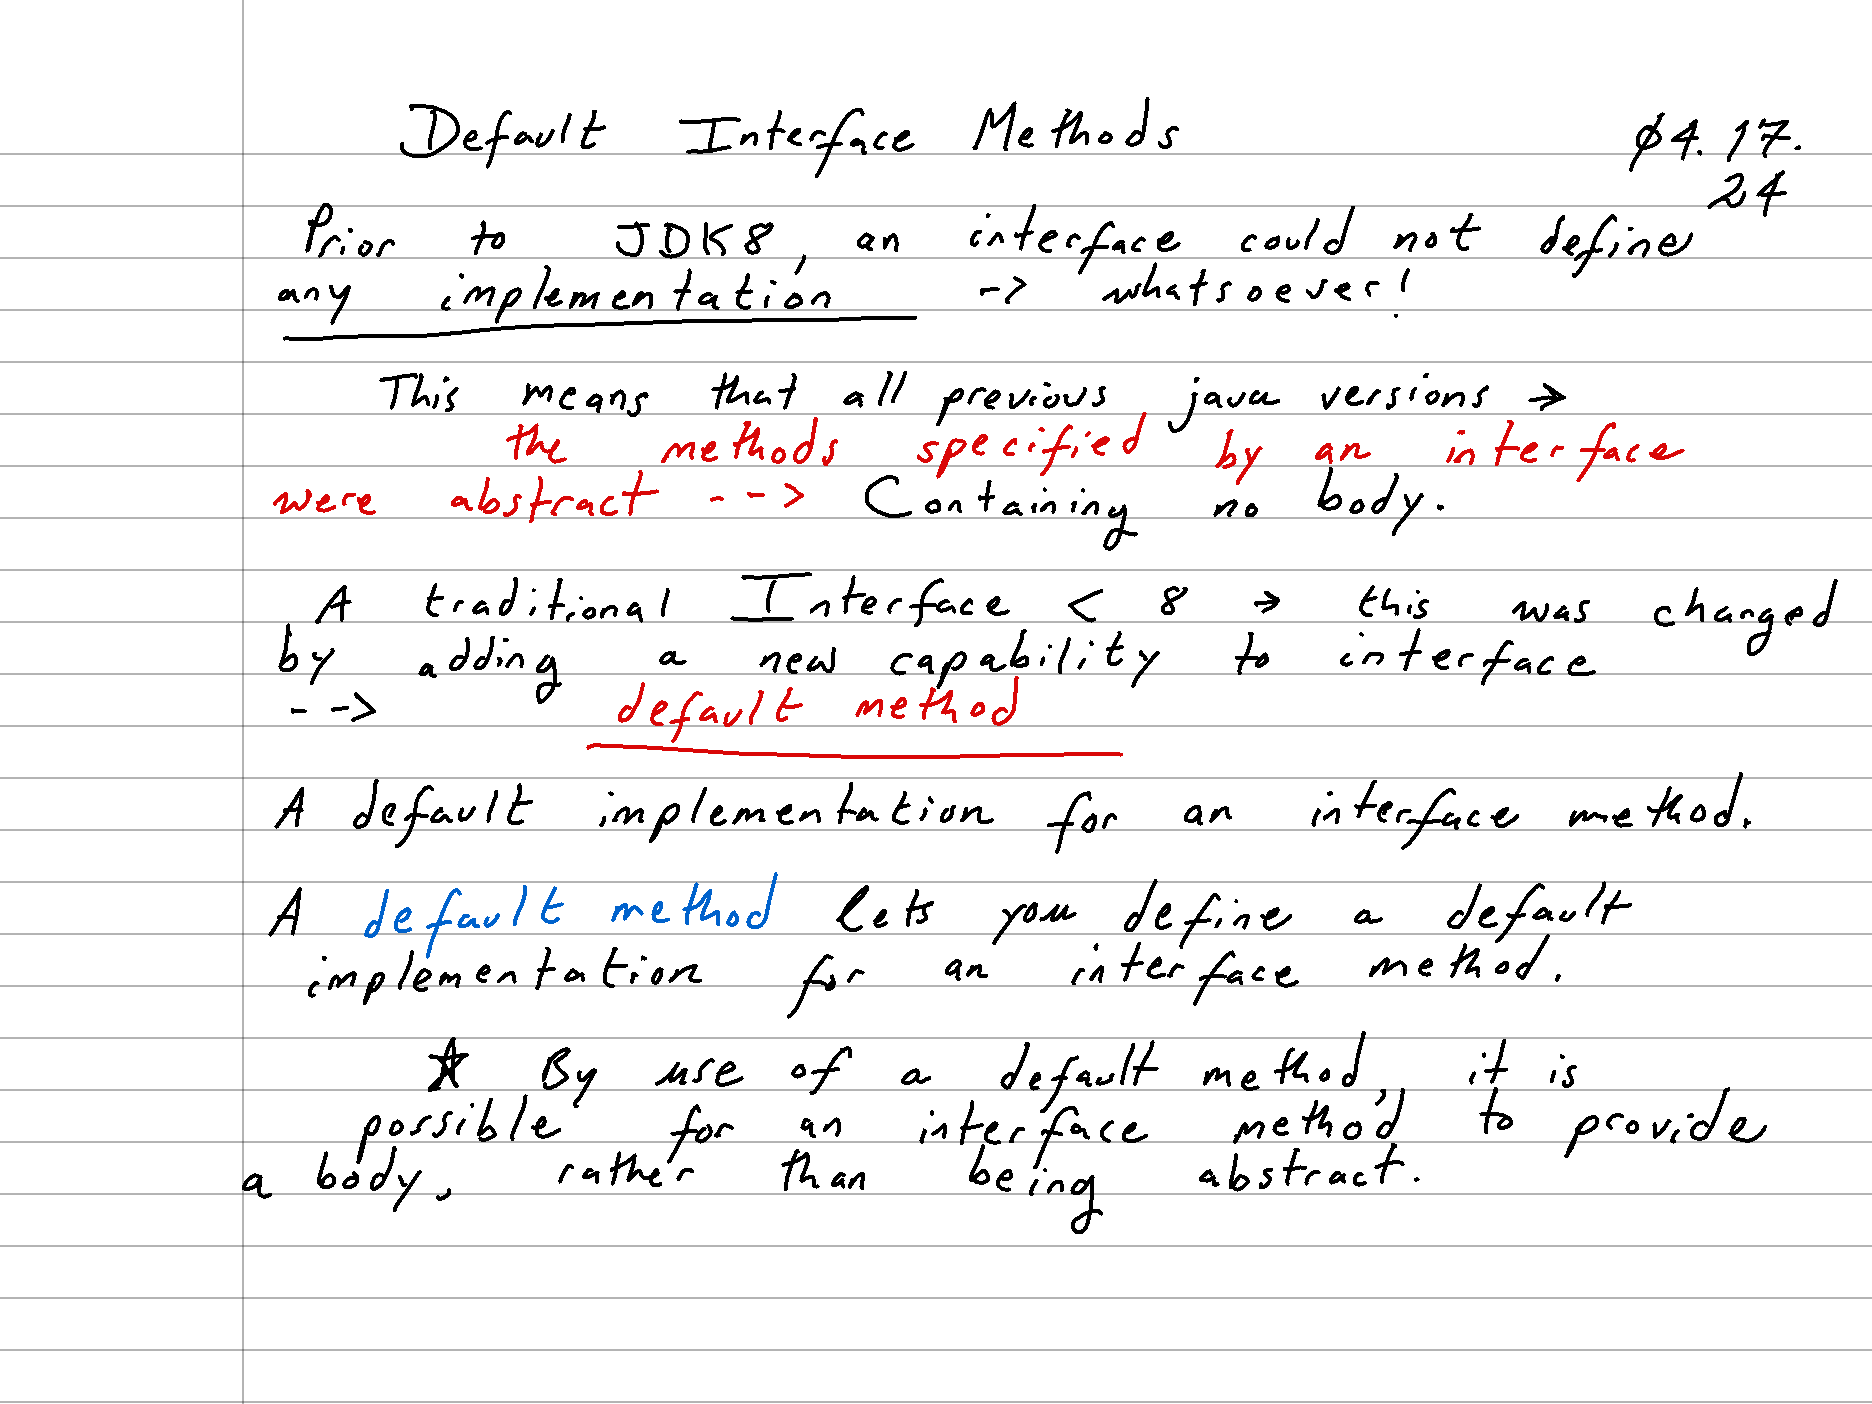 Default Interface Methods
04.17.
24
Prior to JDK8, an interface could not define
any implementation -> whatsoever!
This means that all previous java versions →
the methods specified by an interface
were abstract --> Containing no body.
A traditional Interface < 8 → this was changed
by adding a new capability to interface
--> default method
A default implementation for an interface method.
A default method lets you define a default
implementation for an interface method.
★ By use of a default method, it is
possible for an interface method to provide
a body, rather than being abstract.